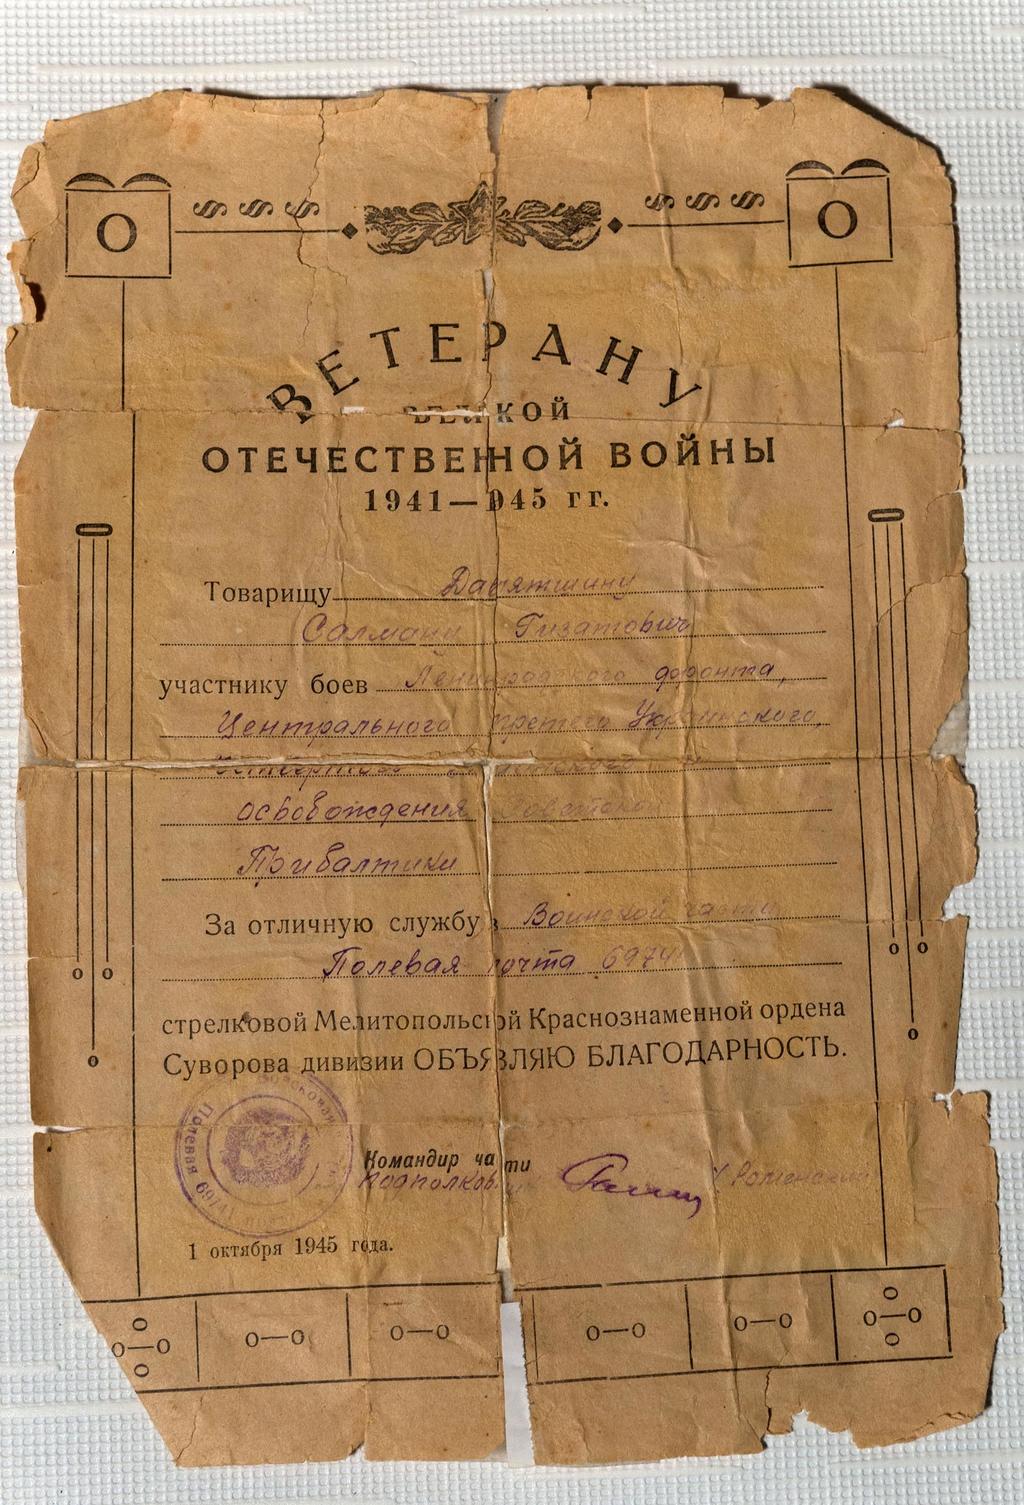 О О
ВЕТЕРАНУ
ВЕЛИКОЙ
ОТЕЧЕСТВЕННОЙ ВОЙНЫ
1941—1945 гг.
Товарищу Давятшину
Салману Гизатович
участнику боев Ленинградского фронта,
Центрального третего Украинского,
Четвертого
освобождения Советской
Прибалтики
За отличную службу в Воинской части
Полевая почта 69741
стрелковой Мелитопольской Краснознаменной ордена
Суворова дивизии ОБЪЯВЛЯЮ БЛАГОДАРНОСТЬ.
Полевая 69741
Командир части
Подполковник
1 октября 1945 года.
о—о о—о о—о о—о